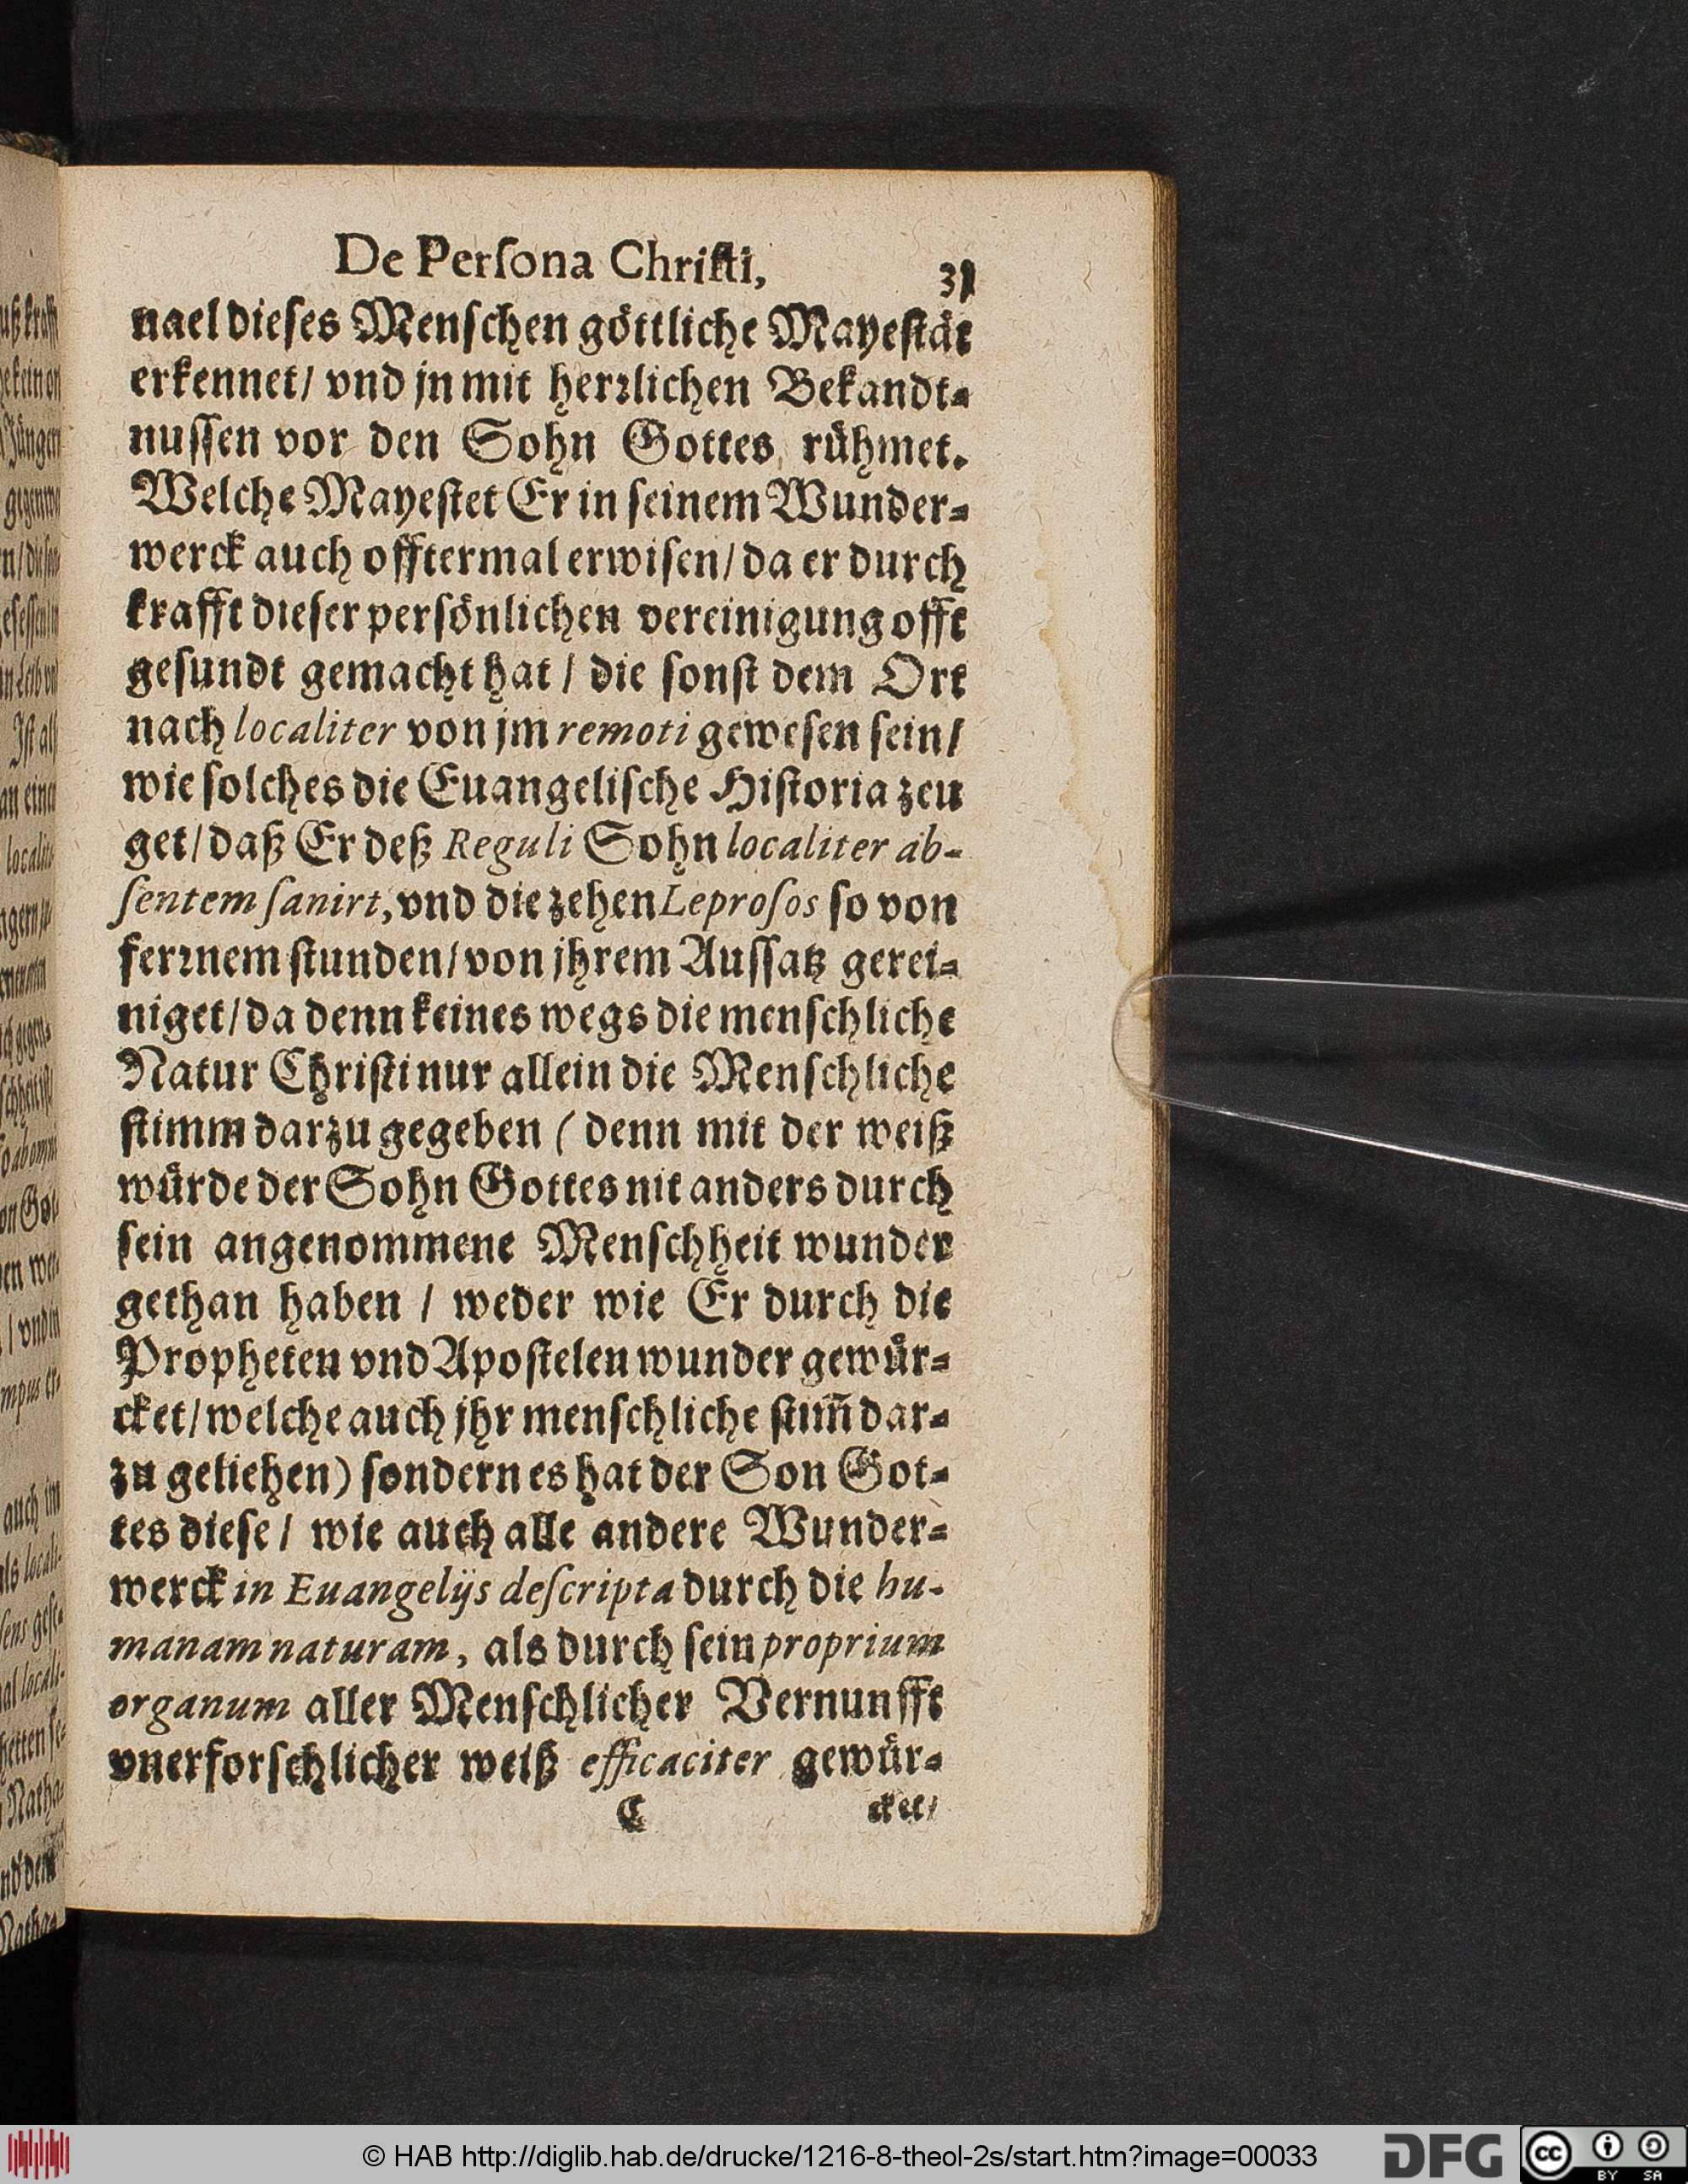 De Perſona Chriſti,
31
nael dieſes Menſchen göttliche Mayeſtät
erkennet / vnd jn mit herꝛlichen Bekandt⸗
nuſſen vor den Sohn Gottes rühmet.
Welche Mayeſtet Er in ſeinem Wunder⸗
werck auch offtermal erwiſen / da er durch
krafft dieſer perſönlichen vereinigung offt
geſundt gemacht hat / die ſonſt dem Ort
nach localiter von jm remoti geweſen ſein /
wie ſolches die Euangeliſche Hiſtoria zeu
get / daß Er deß Reguli Sohn localiter ab-
ſentem ſanirt, vnd die zehen Leproſos ſo von
ferꝛnem ſtunden / von jhrem Auſſatz gerei⸗
niget / da denn keines wegs die menſchliche
Natur Chriſti nur allein die Menſchliche
ſtimm darzu gegeben ( denn mit der weiß
würde der Sohn Gottes nit anders durch
ſein angenommene Menſchheit wunder
gethan haben / weder wie Er durch die
Propheten vnd Apoſtelen wunder gewür⸗
cket / welche auch jhr menſchliche ſtim̃ dar⸗
zu geliehen) ſondern es hat der Son Got⸗
tes dieſe / wie auch alle andere Wunder⸗
werck in Euangelijs deſcripta durch die hu-
manam naturam, als durch ſein proprium
organum aller Menſchlicher Vernunfft
vnerforſchlicher weiß efficaciter gewür⸗
C
cket /
© HAB http://diglib.hab.de/drucke/1216-8-theol-2s/start.htm?image=00033
DFG
cc
BY SA